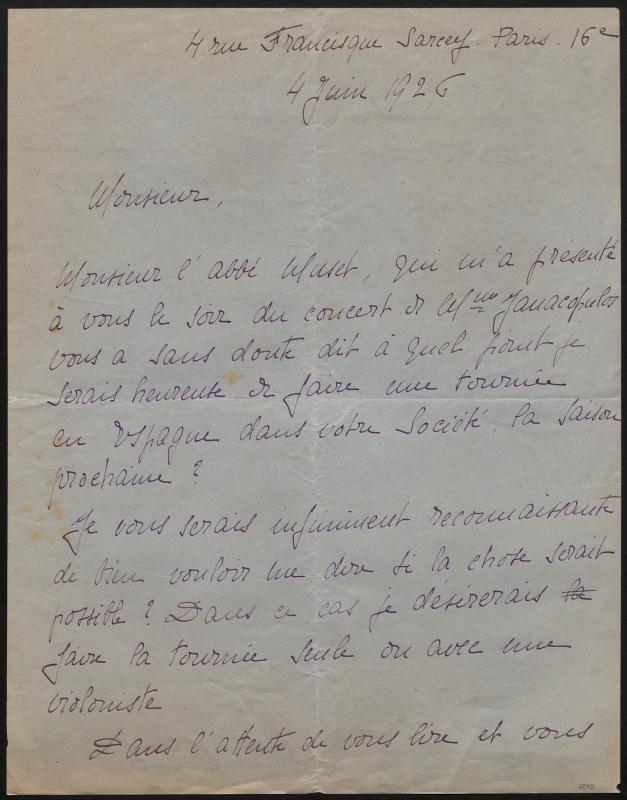 4 rue Francisque Sarcey. Paris. 16e
4 Juin 1926
Monsieur,
Monsieur l'abbé Muset, qui m'a présenté
à vous le soir du concert de Mme Janacopulos
vous a sans doute dit à quel point je
serais heureuse de faire une tournée
en Espagne dans votre Société, la saison
prochaine ?
Je vous serais infiniment reconnaissante
de bien vouloir me dire si la chose serait
possible ? Dans ce cas je désirerais la
faire la tournée seule ou avec une
violoniste
Dans l'attente de vous lire et vous